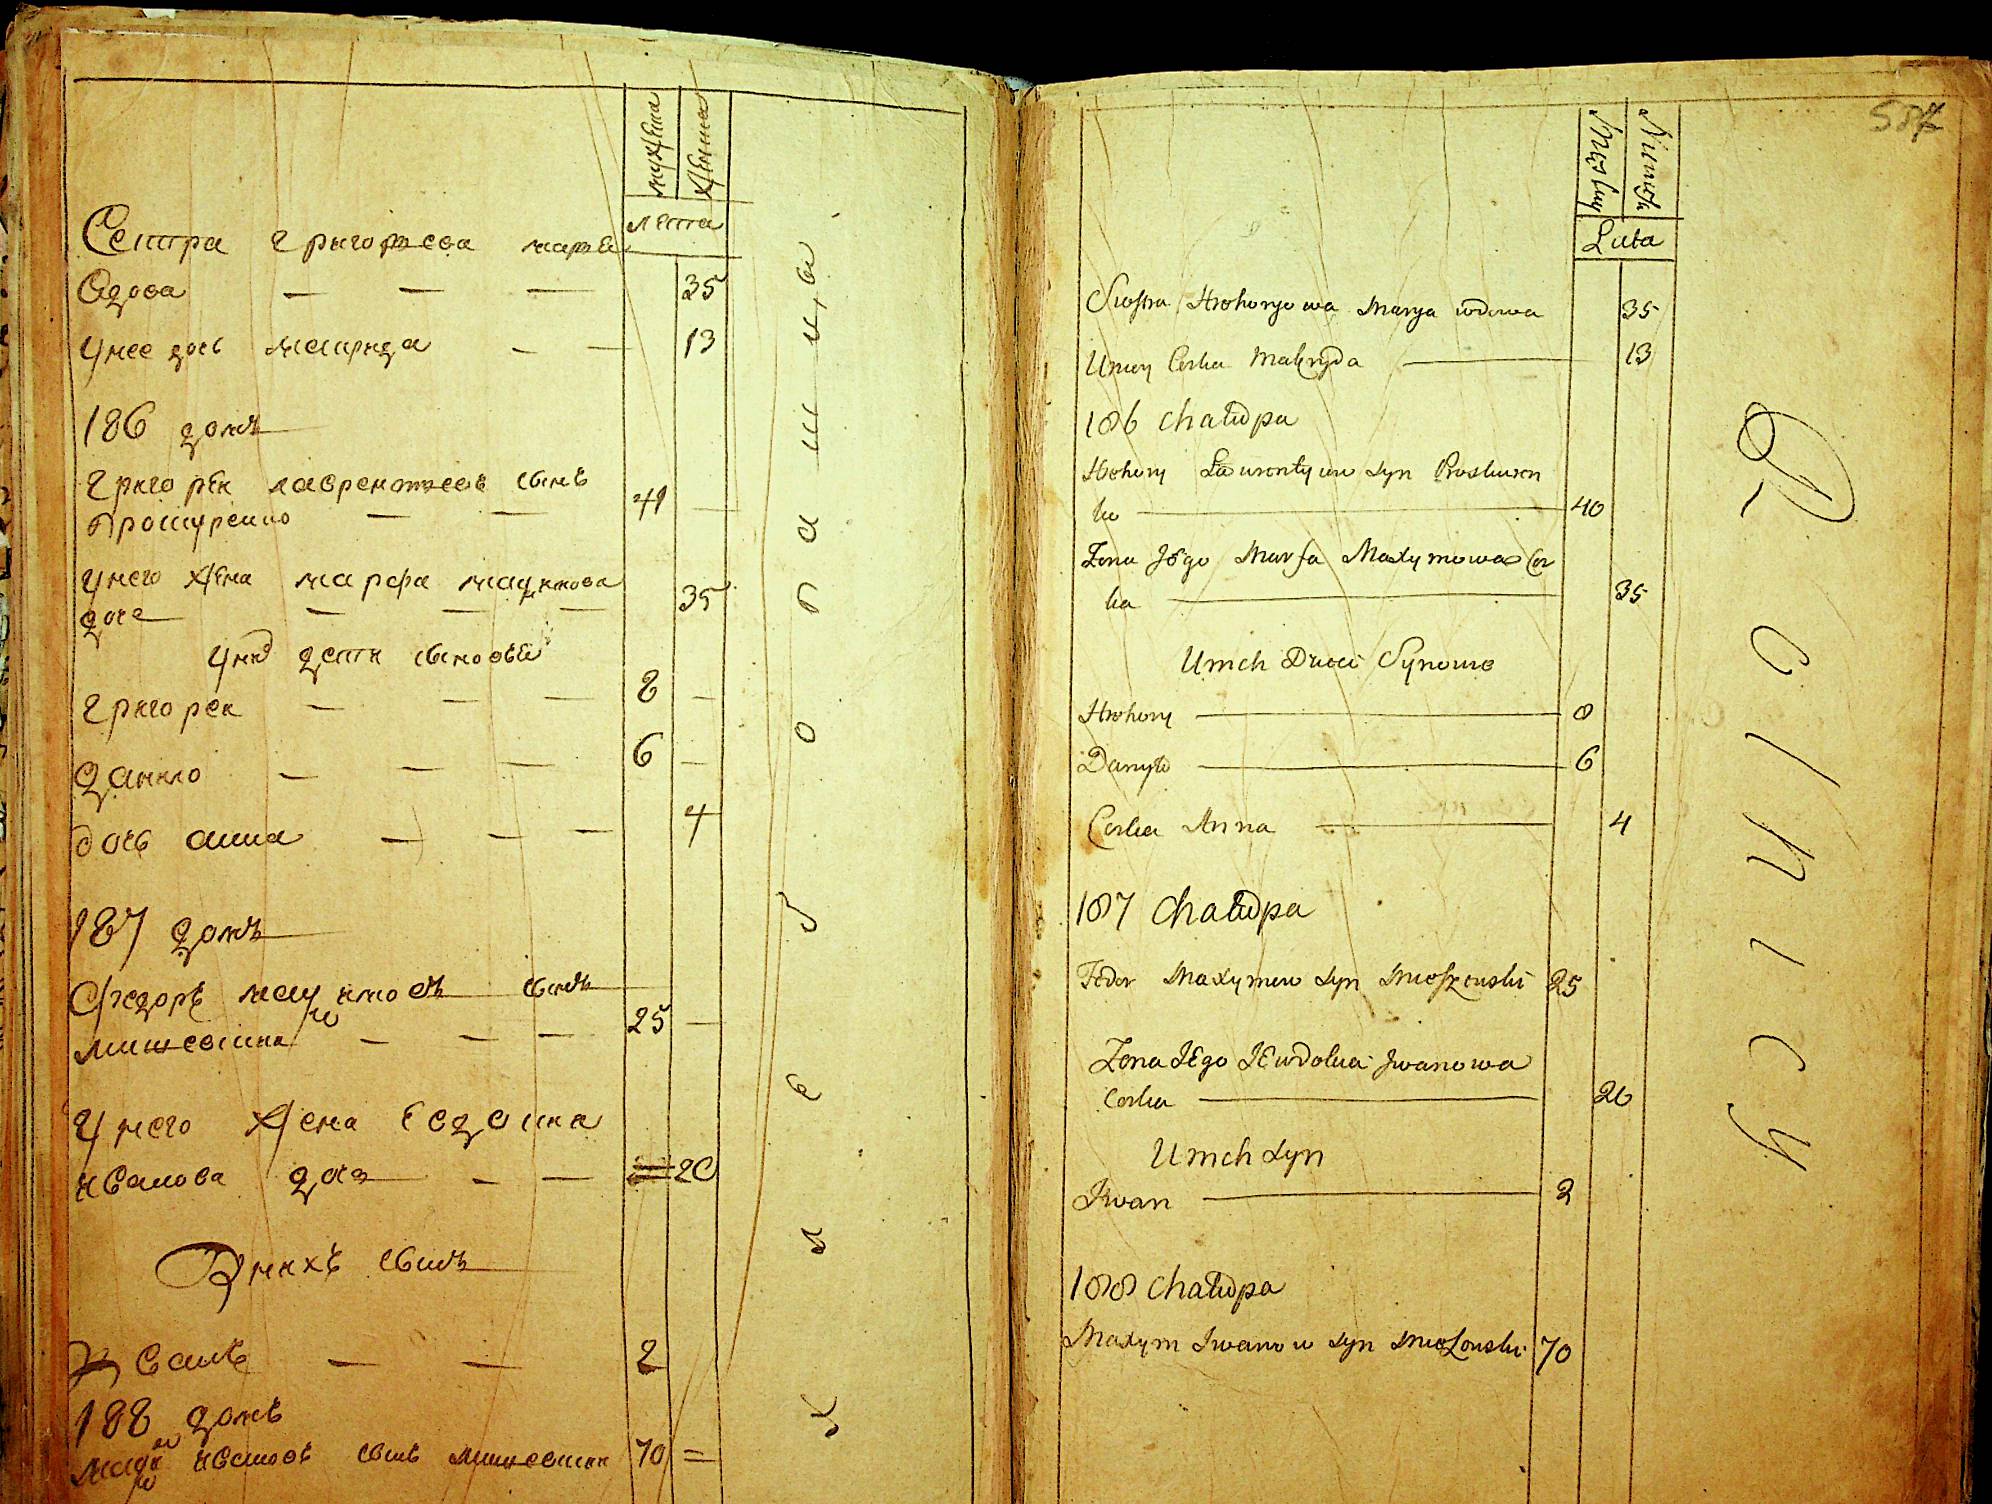 мужеска
женска
лета
Сестра григорьева марья
вдова — — — 35
унее дочь макрида — — 13
186 домъ
григорей лаврентьевъ сынъ
Прошуренко — — 41 —
унего жена марфа максимова
дочь — — — 35
уних дети сыновьи
григорей — — — 8 —
данило — — — 6 —
дочь анна — — — 4
187 домъ
Федоръ максимовъ сынъ
мишевски — — — 25 —
унего жена евдокия
иванова доч — — 20
Унихъ сынъ
Иванъ — — 2
188 домъ
максим ивановъ сынъ мишевски 70 =
хлебопашица
587
Męskiy
Lieta
Siostra Hrehorjowa Marya wdowa 35
Uniey Corka Makryda — 13
186 Chałupa
Hrehory Ławrentyiew Syn Proskuren
ko — 40
Żona Jego Marfa Maxymowa Cor
ka — 35
Unich Dzieci Synowie
Hrehory — 8
Danyło — 6
Corka Anna — 4
187 Chałupa
Fedor Maxymow Syn 25
Żona Jego Jewdokia Jwanowa
Corka — 20
Unich Syn
Iwan — 2
188 Chałupa
Maxym Iwanow Syn 70
Rolnicy